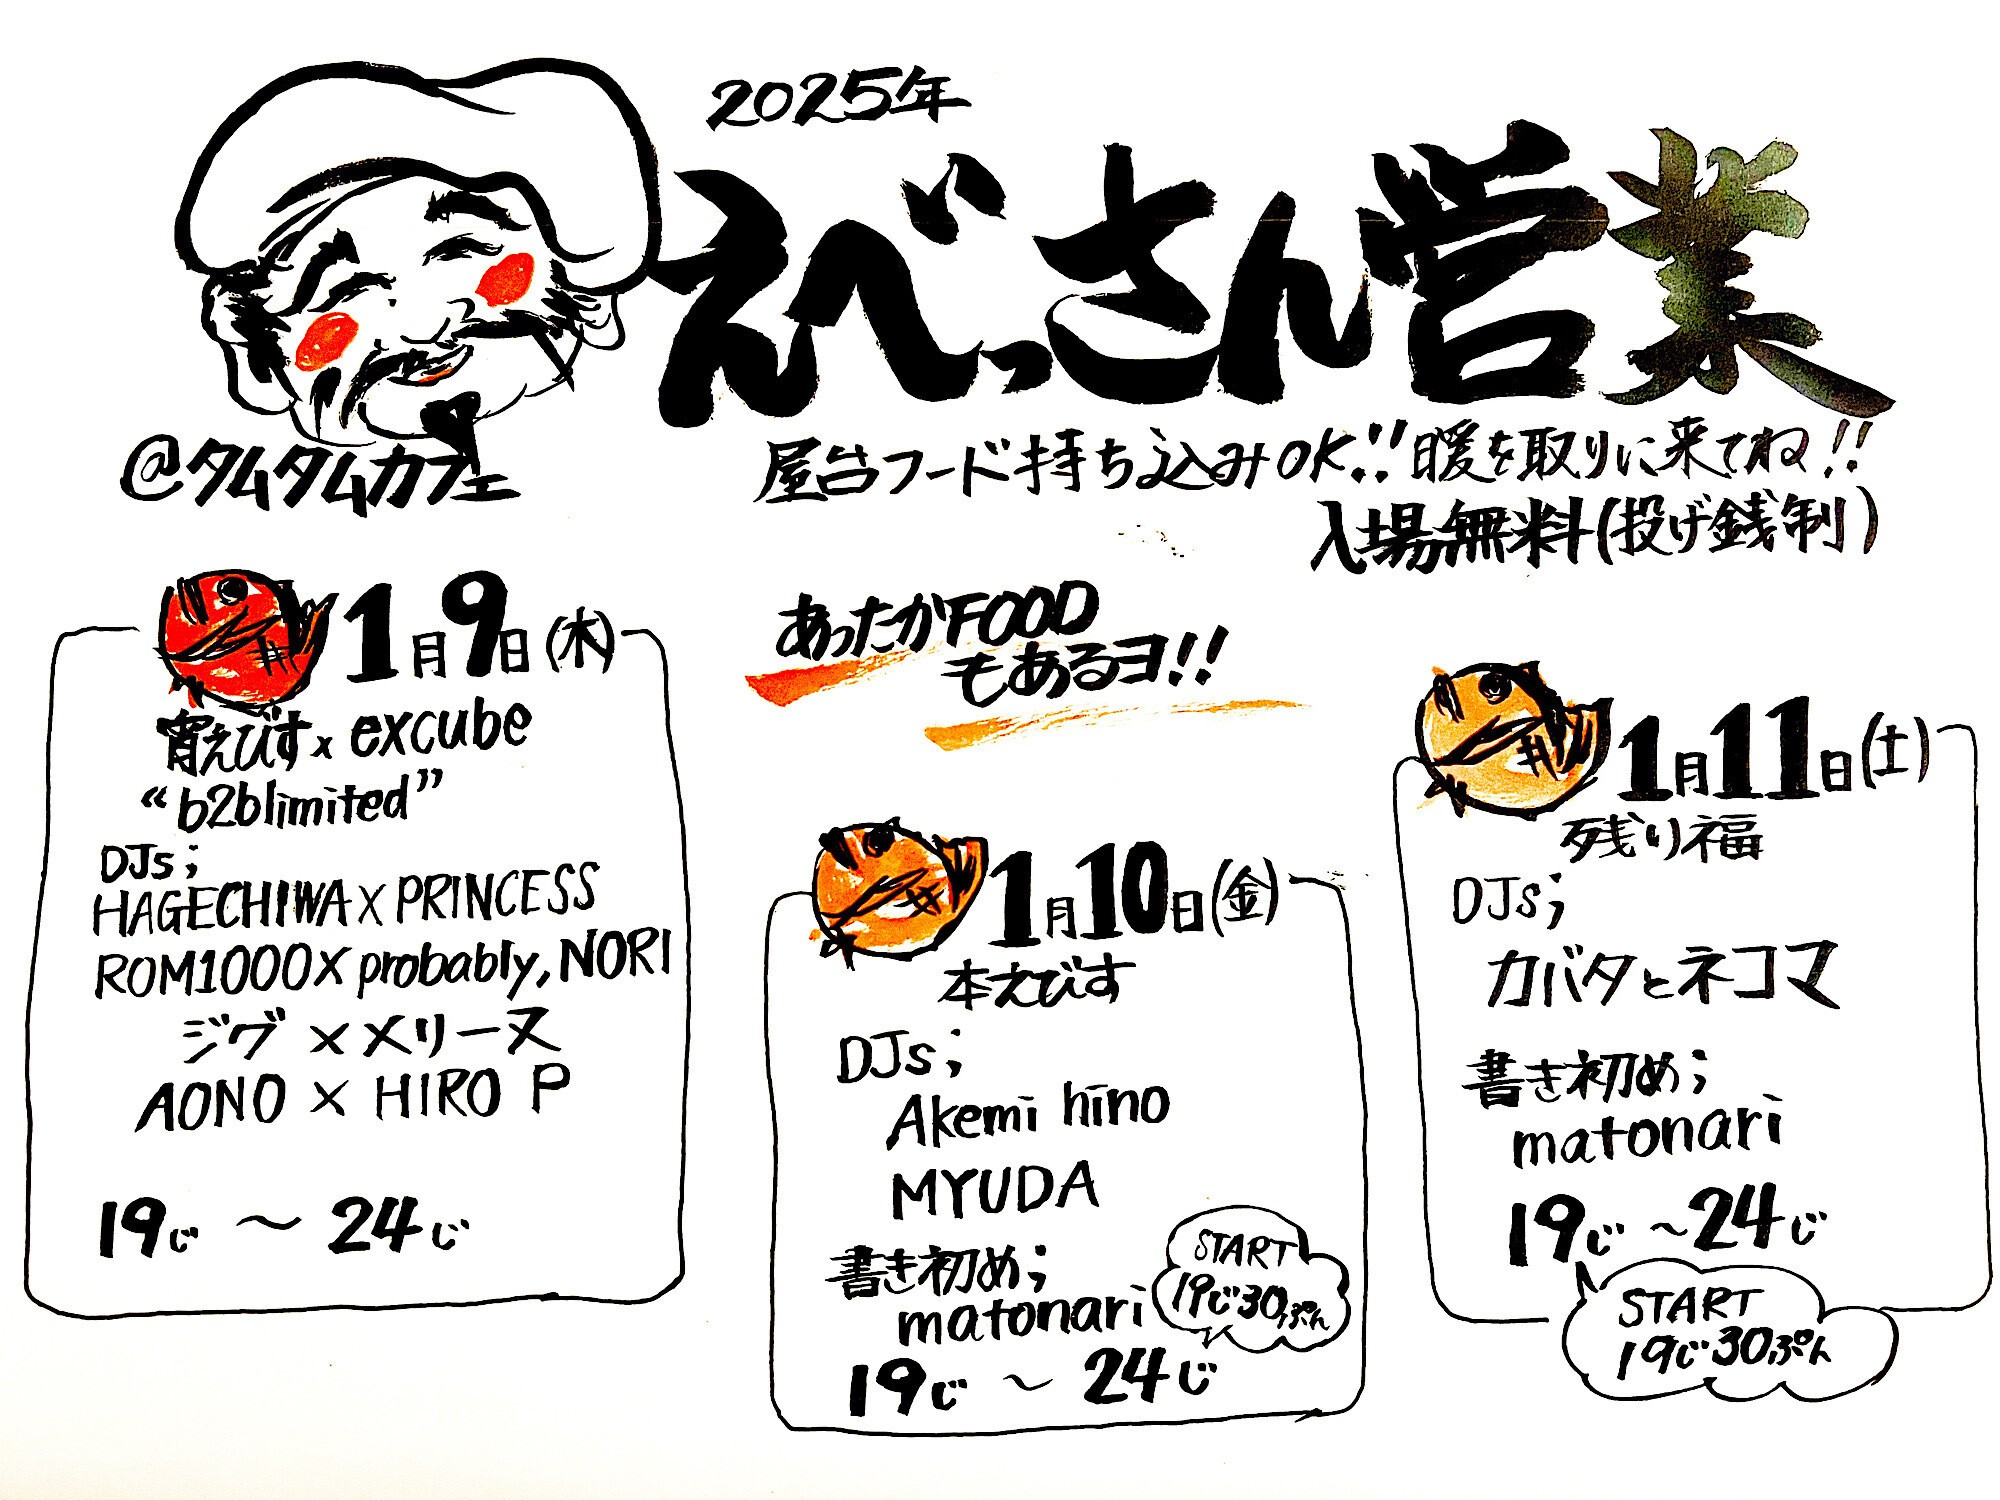 2025年
えべっさん営業
@タムタムカフェ
屋台フード持ち込みOK!!暖を取りに来てね!!
入場無料(投げ銭制)
1月9日(木)
宵えびす×excube
“b2blimited”
DJs;
HAGECHIWA×PRINCESS
ROM1000×probably,NORI
ジグ×メリーヌ
AONO×HIRO P
19じ～24じ
あったかFOOD
もあるヨ!!
1月10日(金)
本えびす
DJs;
Akemi hino
MYUDA
書き初め;
matonari
START
19じ30ぷん
19じ～24じ
1月11日(土)
残り福
DJs;
カバタとネコマ
書き初め;
matonari
19じ～24じ
START
19じ30ぷん